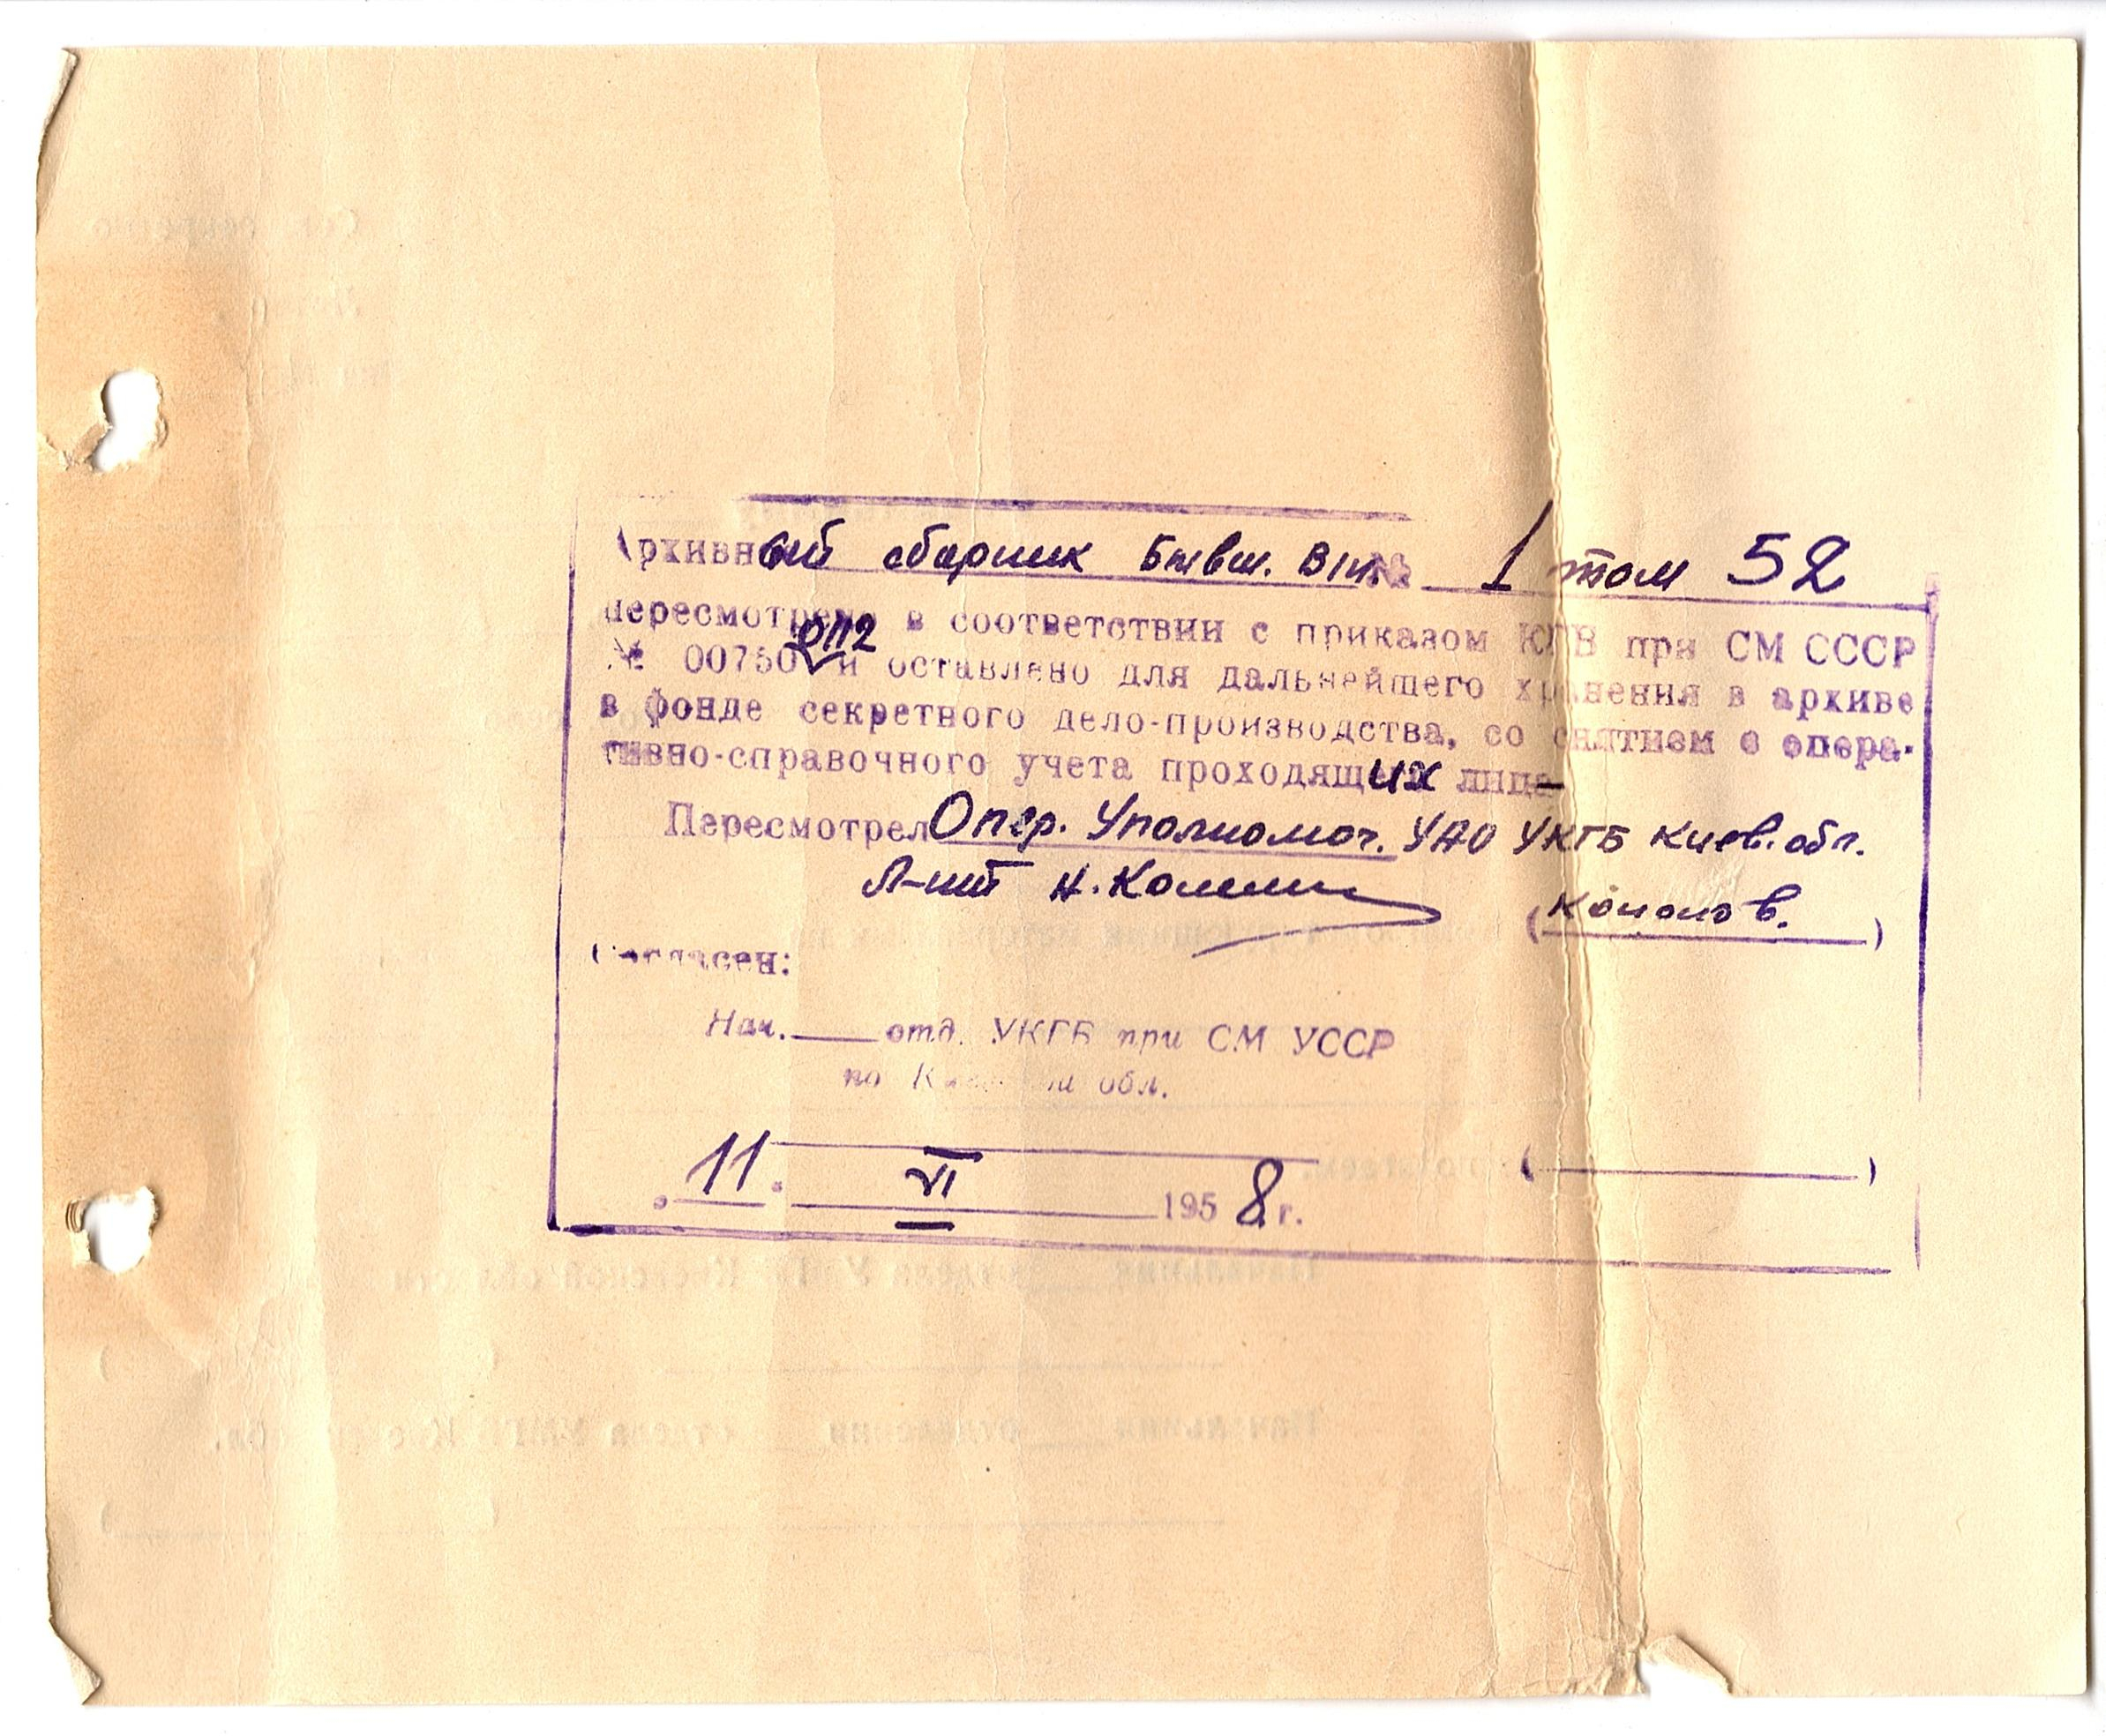 Архивный сборник бывш. 1 том 52
пересмотрено в соответствии с приказом КГБ при СМ СССР
ОП2
№ 00750 и оставлено для дальнейшего хранения в архиве
в фонде секретного дело-производства, со снятием с опера-
тивно-справочного учета проходящих лиц
Пересмотрел Опер. Уполномоч. УАО УКГБ Киев. обл.
Л-нт Н.
(Кононов.)
Согласен:
Нач. ____ отд. УКГБ при СМ УССР
по Киевской обл.
(________)
„11" VI 1958 г.